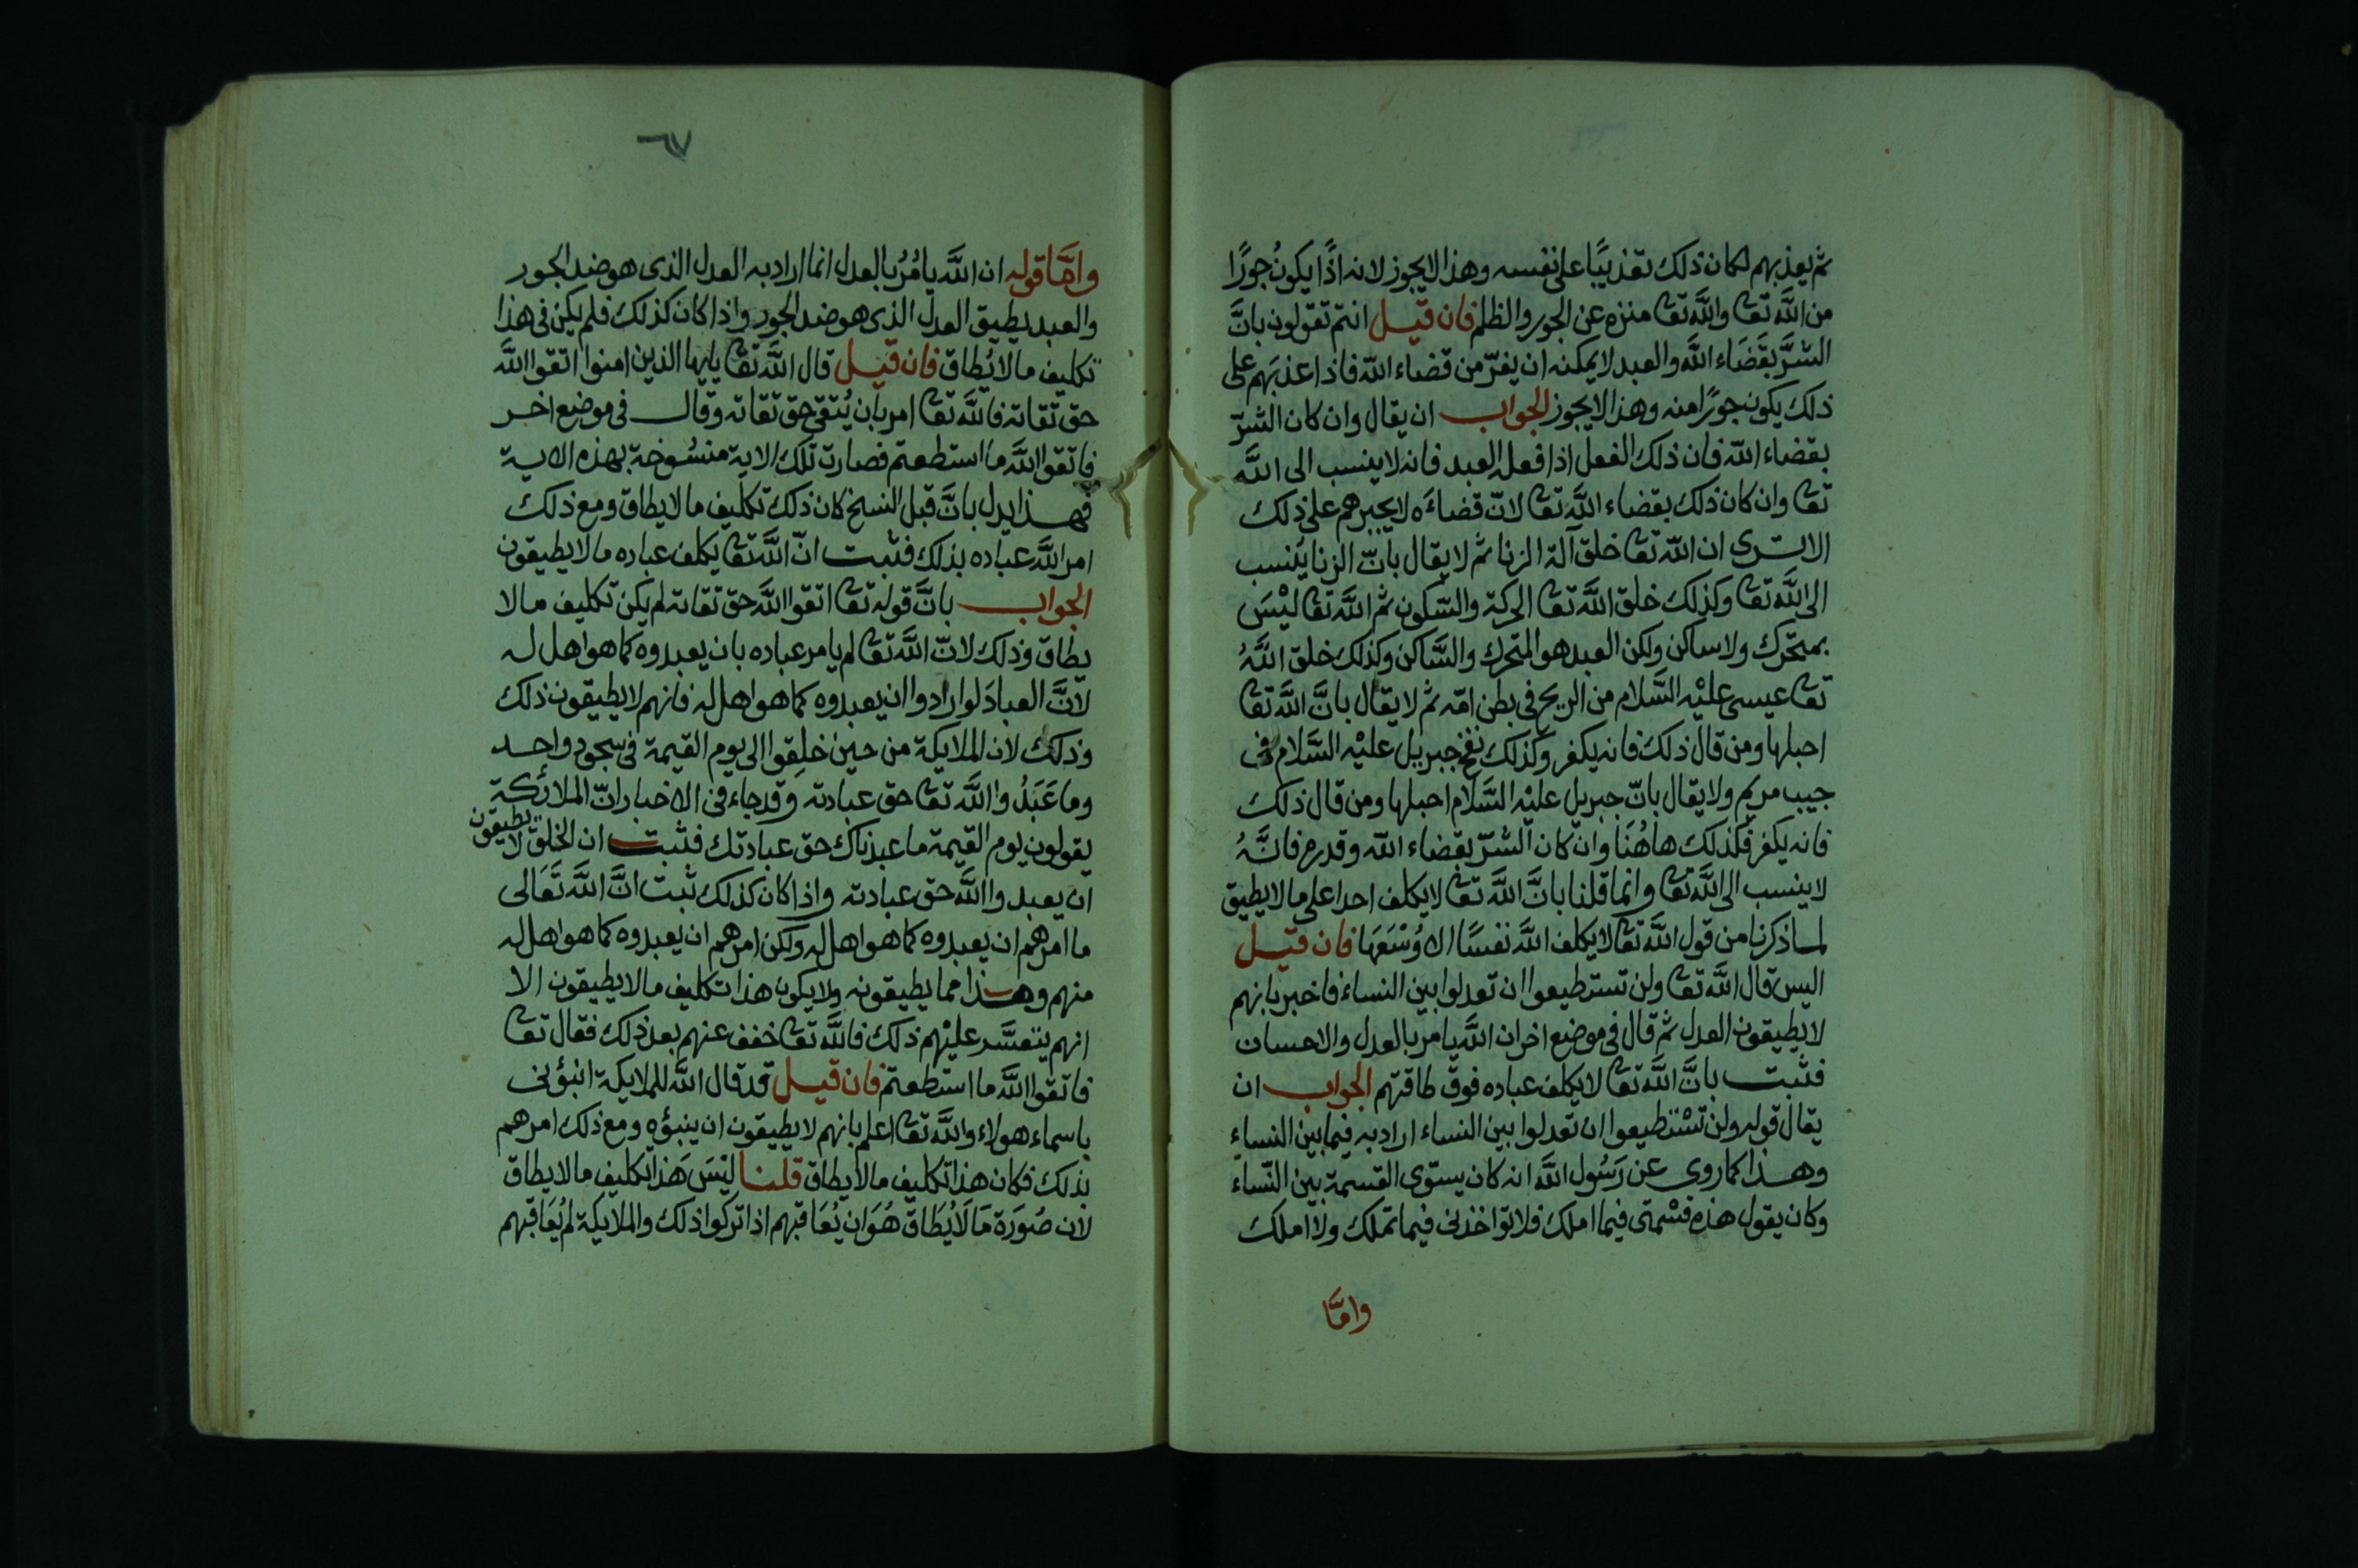 ثم يعذبهم لكان ذلك تعذيبًا على نفسه وهذا لا يجوز لانه اذًا يكونُ جورًا
من الله تعا والله تعا منزه عن الجور والظلم فان قيل انتم تقولون بانَّ
الشرَّ بقضَاء الله والعبد لا يمكنه ان يفرّ من قضاء الله فاذا عذبَهم على
ذلك يكون جورًا منه وهذا لا يجوز الجواب ان يقال وان كان الشرّ
بقضاء الله فان ذلك الفعل اذا فعله العبد فانه لا ينسب الى الله
تعا وان كان ذلك بقضاء الله تعا لانّ قضاءَه لا يجبرهم على ذلك
الا ترى ان الله تعا خلق آلة الزنا ثم لا يقال بانّ الزنا يُنسب
الى الله تعا وكذلك خلق الله تعا الحركة والسّكون ثم الله تعا ليْسَ
بمتحرك ولا ساكن ولكن العبد هو المتحرك والسَّاكن وكذلك خلق اللهُ
تعا عيسى عليْه السَّلام من الريح في بطن امّه ثم لا يقال بانَّ الله تعا
احبلها ومن قال ذلك فانه يكفر وكذلك نفخ جبريل عليْه السَّلام في
جيب مريم ولا يقال بانّ جبريل عليْه السَّلام احبلها ومن قال ذلك
فانه يكفر فكذلك هاهُنَا وان كان الشرّ بقضاء الله وقدره فانَّهُ
لا ينسب الى الله تعا وانما قلنا بانَّ الله تعا لا يكلف احدا على ما لا يطيق
لما ذكرنا من قول الله تعا لا يكلف الله نفسًا الا وُسْعَهَا فان قيل
اليس قال الله تعا ولن تستطيعوا ان تعدلوا بين النساء فاخبر بانهم
لا يطيقون العدل ثم قال في موضع اخر ان الله يامر بالعدل والاحسان
فثبت بانَّ الله تعا لا يكلف عباده فوق طاقتهم الجواب ان
يقال قوله ولن تسْتطيعوا ان تعدلوا بين النساء اراد به فيما بين النساء
وهذا كما روى عن رَسُول الله انه كان يستوّى القسمة بين النّساء
وكان يقول هذه قسْمتى فيما املك فلا تواخذنى فيما تملك ولا املك
وامَّا
٦٧
وامَّا قوله ان الله يامُرُ بالعدل انما اراد به العدل الذى هو ضد الجور
والعبد يطيق العدل الذى هو ضد الجور واذا كان كذلك فلم يكن في هذا
تكليف ما لا يُطاق فان قيل قال الله تعا يايها الذين امنوا اتقوا الله
حق تقاته فالله تعا امر بان يُتقى حق تقاته وقال في موضع اخر
فاتقوا الله ما استطعتم فصارت تلك الاية منسُوخة بهذه الاية
فهذا يدل بانَّ قبل النسخ كان ذلك تكليف ما لا يطاق ومع ذلك
امر الله عباده بذلك فثبت انّ الله تعا يكلف عباده ما لا يطيقون
الجواب بانَّ قوله تعا اتقوا الله حق تقاته لم يكن تكليف ما لا
يطاق وذلك لانّ الله تعا لم يامر عباده بان يعبدوه كما هو اهل له
لانَّ العبادَ لو ارادوا ان يعبدوه كما هو اهل له فانهم لا يطيقون ذلك
وذلك لان الملايكة من حين خلِقوا الى يوم القيمة في سجود واحد
وما عَبَدُوا الله تعا حق عبادته وقد جاء في الاخبار انّ الملائكة
يقولون يوم القيمة ما عبدناك حق عبادتك فثبت ان الخلق لا يطيقون
ان يعبدوا الله حق عبادته واذا كان كذلك ثبت انَّ الله تَعَالى
ما امرهم ان يعبدوه كما هو اهل له ولكن امرهم ان يعبدوه كما هو اهل له
منهم وهذا مما يطيقونه ولا يكون هذا تكليف ما لا يطيقون الا
انهم يتعسَّر عليْهم ذلك فالله تعا خفف عنهم بعد ذلك فقال تعا
فاتقوا الله ما استطعتم فان قيل قد قال الله للملايكة انبؤنى
باسماء هولاء والله تعا اعلم بانهم لا يطيقون ان ينبؤه ومع ذلك امرهم
بذلك فكان هذا تكليف ما لا يطاق قلنا ليْسَ هَذا تكليف ما لا يطاق
لان صُورَة مَا لَا يُطَاق هُوَ ان يُعَاقبهم اذا تركوا ذلك والملايكة لم يُعَاقبهم